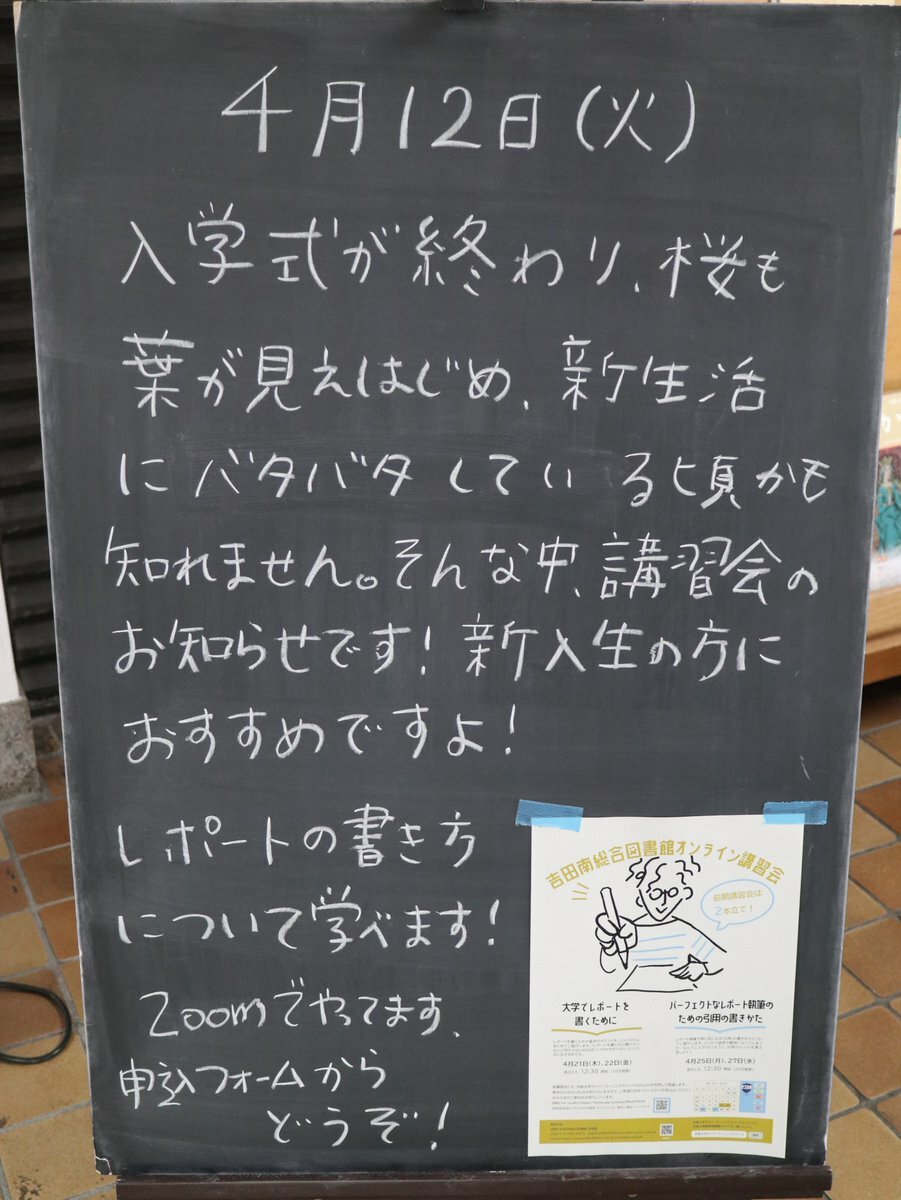 4月12日(火)
入学式が終わり、桜も
葉が見えはじめ、新生活
にバタバタしている頃かも
知れません。そんな中、講習会の
お知らせです！新入生の方に
おすすめですよ！
レポートの書き方
について学べます！
Zoomでやってます、
申込フォームから
どうぞ！
吉田南総合図書館オンライン講習会
前期講習会は
2本立て！
大学でレポートを
書くために
4月21日(木)、22日(金)
12:30
パーフェクトなレポート執筆の
ための引用の書きかた
4月25日(月)、27日(水)
12:30